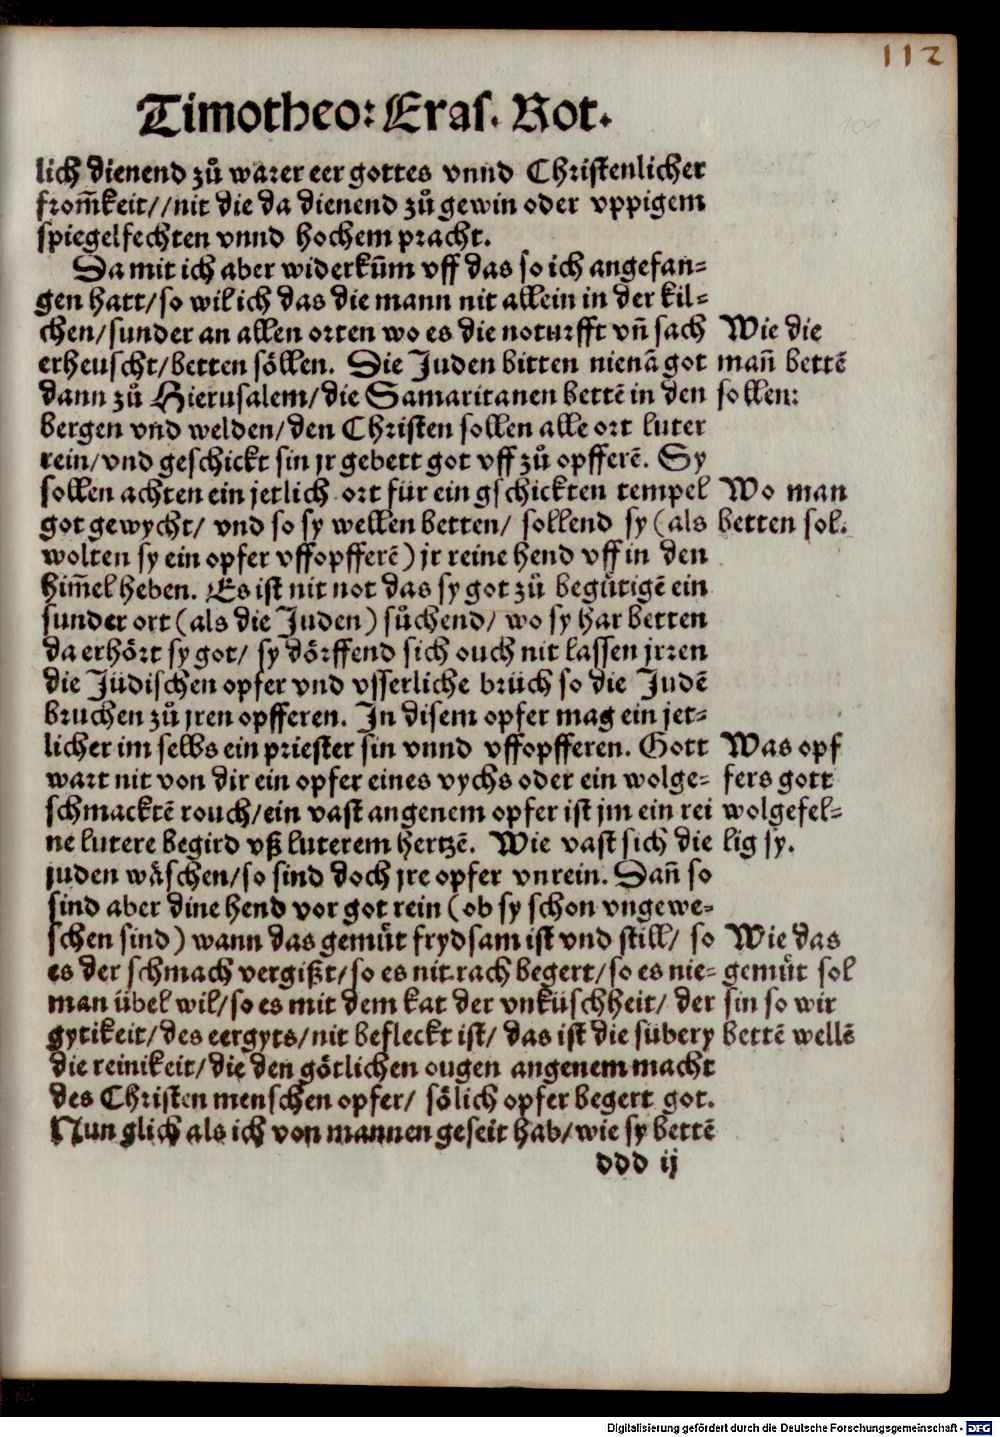 112
101
Timotheo: Eras. Rot.
lich dienend zů warer eer gottes vnnd Christenlicher
from̄keit//nit die da dienend zů gewin oder vppigem
spiegelfechten vnnd hochem pracht.
Da mit ich aber widerkūm vff das so ich angefan=
gen hatt/so wil ich das die mann nit allein in der kil=
chen/sunder an allen orten wo es die noturfft vn̄ sach
erheuscht/betten söllen. Die Juden bitten nienā got
dann zů Hierusalem/die Samaritanen bettē in den
bergen vnd welden/den Christen sollen alle ort luter
rein/vnd geschickt sin jr gebett got vff zů opfferē. Sy
sollen achten ein jetlich ort für ein gschickten tempel
got gewycht/ vnd so sy wellen betten/ sollend sy (als
wolten sy ein opfer vffopfferē) jr reine hend vff in den
him̄el heben. Es ist nit not das sy got zů begütigē ein
sunder ort (als die Juden) sůchend/ wo sy har betten
da erhört sy got/ sy dörffend sich ouch nit lassen jrren
die Jüdischen opfer vnd vsserliche brüch so die Judē
bruchen zů jren opfferen. In disem opfer mag ein jet=
licher im selbs ein priester sin vnnd vffopfferen. Gott
wart nit von dir ein opfer eines vychs oder ein wolge=
schmacktē rouch/ein vast angenem opfer ist jm ein rei
ne lutere begird vß luterem hertzē. Wie vast sich die
juden wäschen/so sind doch jre opfer vnrein. Dan̄ so
sind aber dine hend vor got rein (ob sy schon vngewe=
schen sind) wann das gemüt frydsam ist vnd still/ so
es der schmach vergißt/so es nit rach begert/so es nie=
man übel wil/so es mit dem kat der vnküschheit/ der
gytikeit/des eergyts/nit befleckt ist/ das ist die sübery
die reinikeit/die den götlichen ougen angenem macht
des Christen menschen opfer/ sölich opfer begert got.
Nun glich als ich von mannen geseit hab/wie sy bettē
ddd ij
Wie die
man̄ bettē
sollen:
Wo man
betten sol.
Was opf
fers gott
wolgefel=
lig sy.
Wie das
gemüt sol
sin so wir
bettē wellē
Digitalisierung gefördert durch die Deutsche Forschungsgemeinschaft - DFG